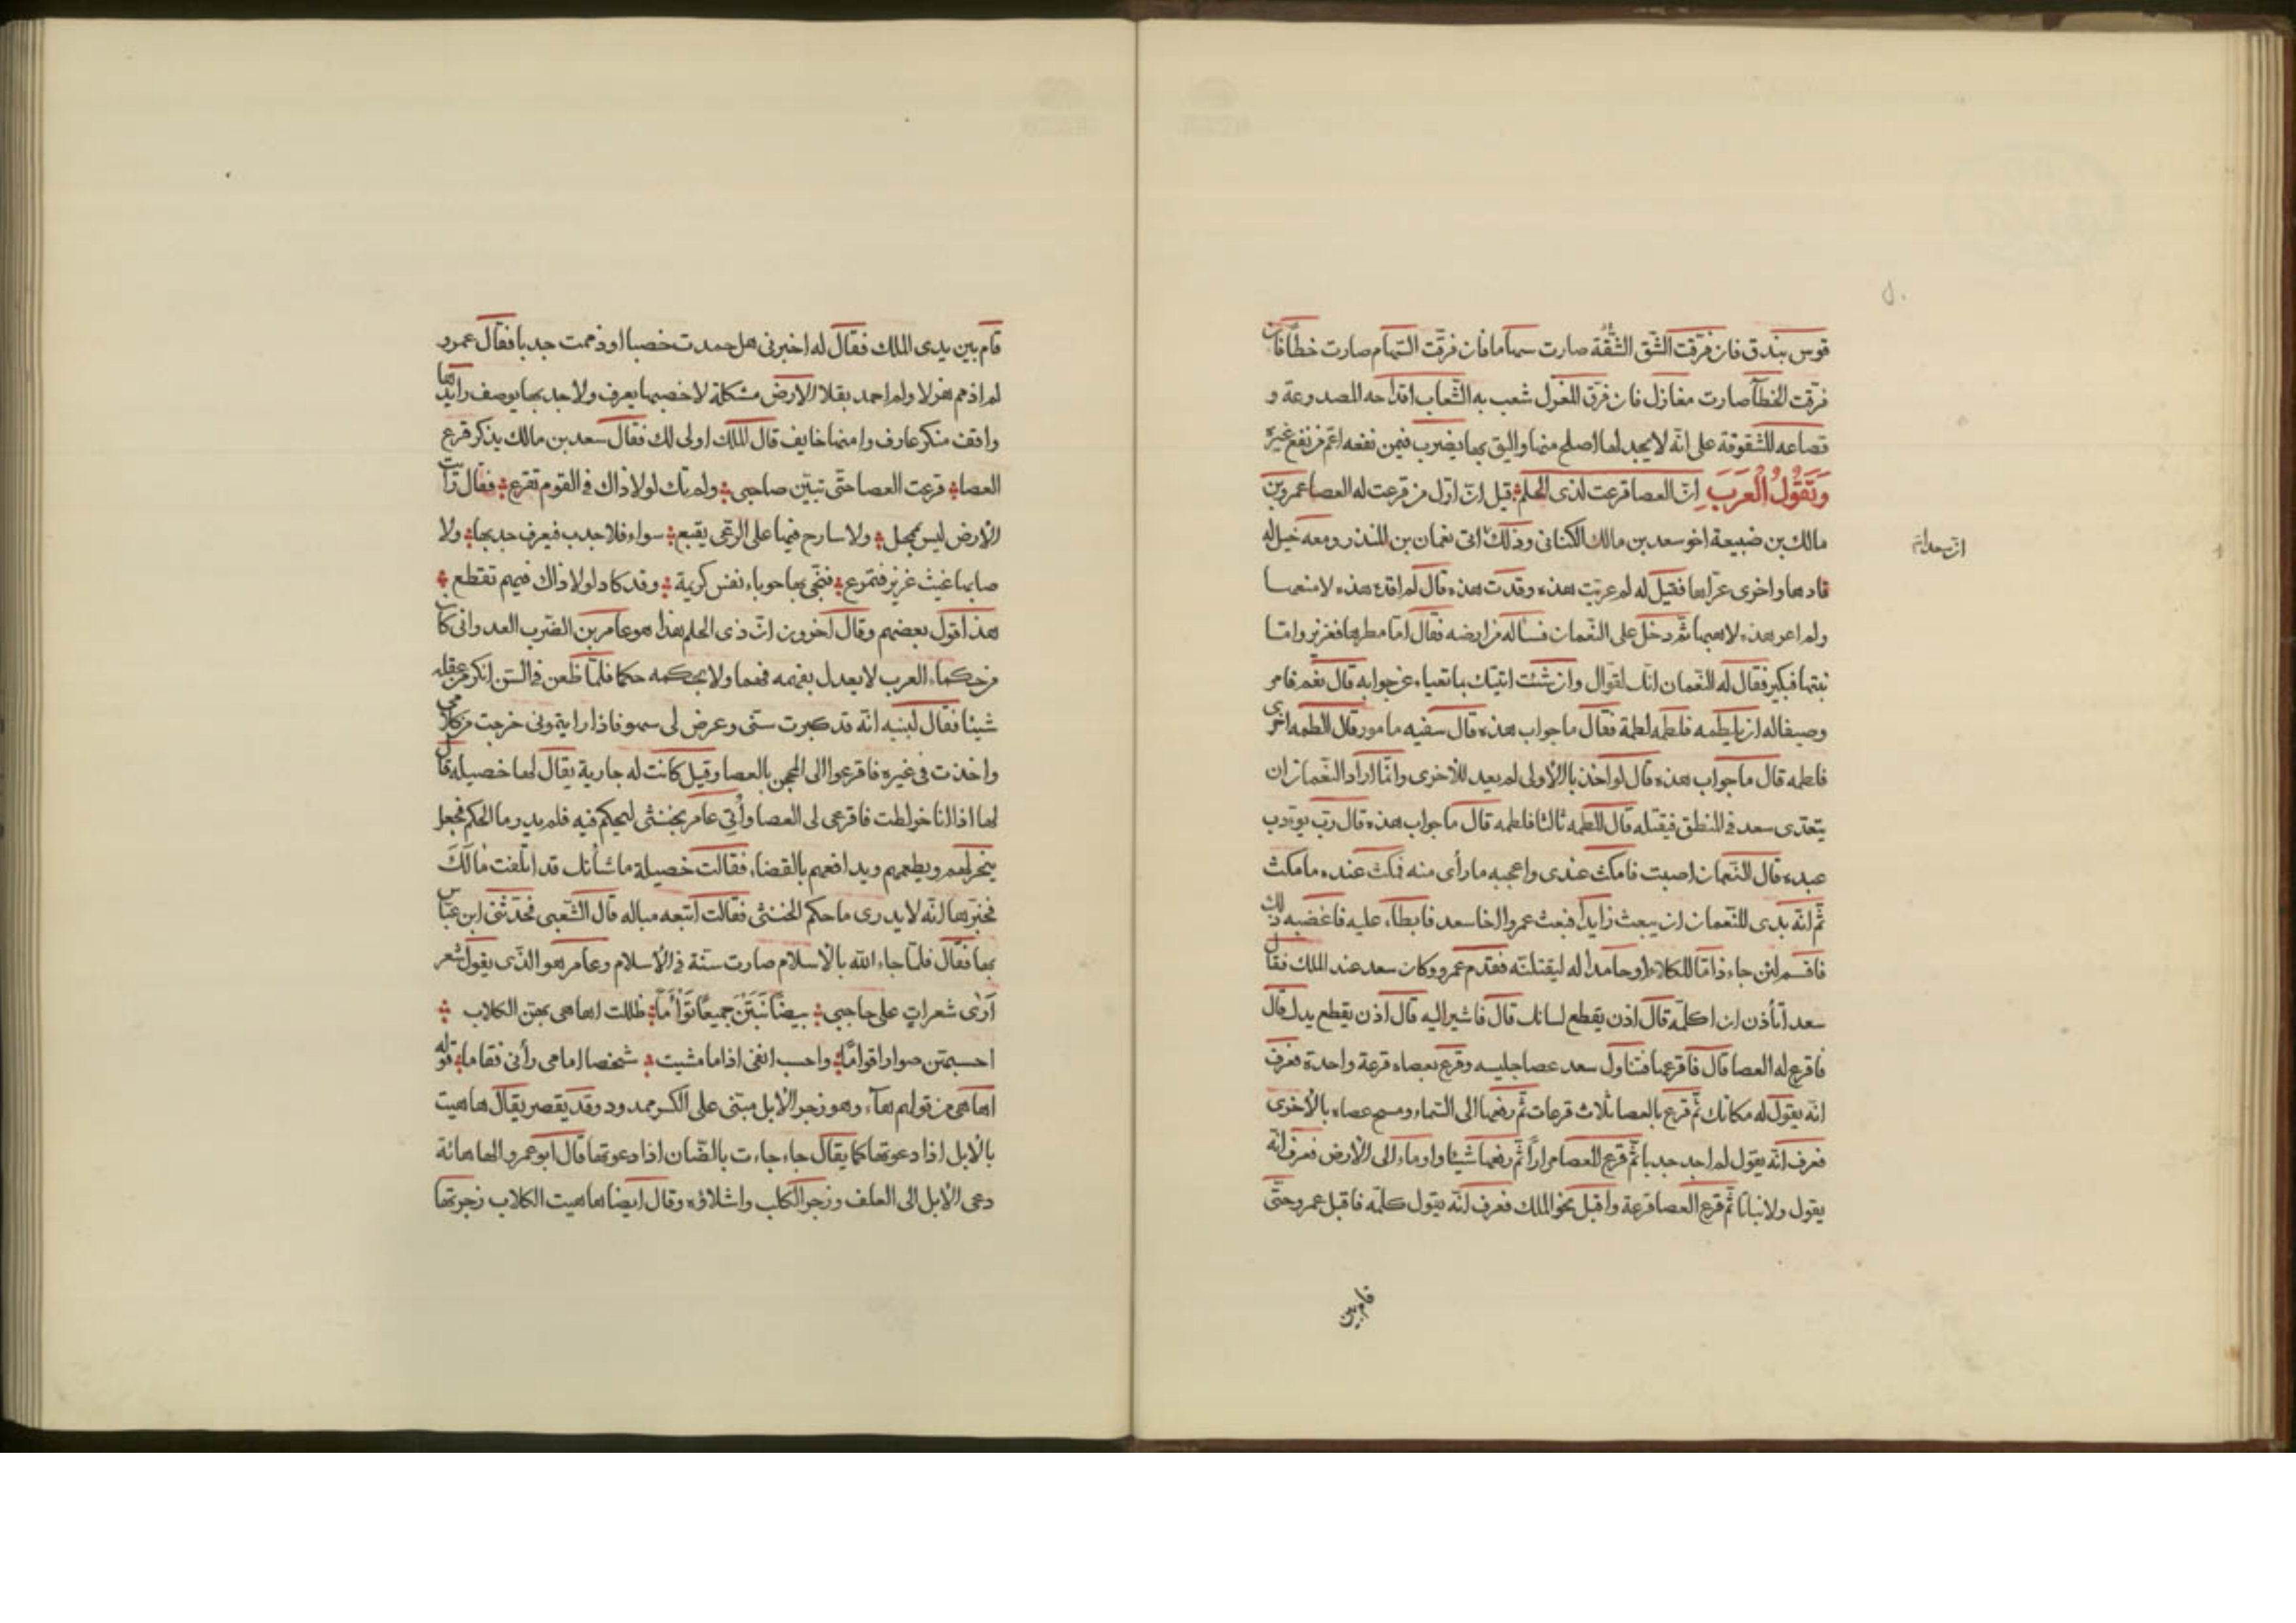 قوس بندق فان فرّقت الشّق الشّقّة صارت سهاما فان فرّقت السّهام صارت خطّافات
فرّقت الخطّا صارت مغازل فان فرّق المغزل شعب به الشّعاب اقداحه المصدوعة و
قصاعه المشقوقة على انّه لا يجد لها اصلح منها واليق بها يضرب فيمن نفعه اعمّ من نفع غيره
وَتَقُولُ الْعَرَبَ انّ العصا قرعت لذى الحلم قيل انّ اوّل من قرعت له العصا عمرو بن
مالك بن ضبيعة اخو سعد بن مالك الكنانى وذلك اتى نعمان بن المنذر ومعه خيل له
قادها واخرى عرّاها فقيل له لم عريت هذه وقدت هذه قال لم اقد هذه لامنعها
ولم اعر هذه لاهبها ثم دخل على النّعمان فسأله من ارضه فقال امّا مطرها فغزير وامّا
نبتها فكبير فقال له النّعمان انّك لقوّال وان شئت اتيتك بما تعياء عن جوابه قال نعم فامر
وصيفا له ان يلطمه فلطمه لطمة فقال ما جواب هذه قال سفيه مامور قال الطمه اخرى
فلطمه قال ما جواب هذه قال لو اخذ بالاولى لم يعد للاخرى وانّما اراد النّعمان ان
يتعدّى سعد فى المنطق فيقتله قال الطمه ثالثا فلطمه قال ما جواب هذه قال ربّ يؤدب
عبده قال النّعمان اصبت فامكث عندى واعجبه ما رأى منه فمكث عنده ما مكث
ثمّ انّه بدى للنّعمان ان يبعث رايدا فبعث عمروا اخا سعد فابطأ، عليه فاغضبه ذلك
فاقسم لئن جاء ذامّا للكلاء او حامدا له ليقتلنّه فقدم عمرو وكان سعد عند الملك فقال
سعد أتأذن ان اكلّمه قال اذن يقطع لسانك قال فاشير اليه قال اذن يقطع يدك قال
فاقرع له العصا قال فاقرعها فتناول سعد عصا جليسه وقرع بعصاه قرعة واحدة فعرف
انه يقول له مكانك ثمّ قرع بالعصا ثلاث قرعات ثمّ رفعها الى السّماء ومسح عصاه بالاخرى
فعرف انّه يقول لم اجد جدبا ثمّ قرع العصا مرارا ثمّ رفعها شيئا واوماء الى الارض فعرف انّه
يقول ولا نباتا ثمّ قرع العصا قرعة واقبل نحو الملك فعرف انّه يقول كلّمه فاقبل عمرو حتّى
قام بين
قام بين يدى الملك فقال له اخبرنى هل حمدت خصبا او ذممت جدبا فقال عمرو
لم اذمم هزلا ولم احمد بقلا الارض مشكلة لا خصبها يعرف ولا جدبها يوصف رايدها
واقف منكر عارف وامنها خايف قال الملك اولى لك فقال سعد بن مالك يذكر قرع
العصا قرعت العصا حتّى تبيّن صاحبى ولم تك لولا ذاك فى القوم تقرع فقال رأيت
الارض ليس بمحل ولا سارح فيها على الرّعى يقبع سواء فلا جدب فيعرف جدبها ولا
صابها غيث غزير فتمرع فنجّى بها حوباء نفس كريمة وقد كاد لولا ذاك فيهم تقطع
هذا قول بعضهم وقال اخرون انّ ذى الحلم هذا هو عامر بن الضرب العدوانى كان
من حكماء العرب لا يعدل بفهمه فهما ولا بحكمه حكما فلمّا ظعن فى السّن انكر من عقله
شيئا فقال لبنيه انّه قد كبرت سنّى وعرض لى سهو فاذا رايتمونى خرجت من كلامى
واخذت فى غيره فاقرعوا الى المجن بالعصا وقيل كانت له جارية يقال لها خصيله قال
لها اذا انا خولطت فاقرعى لى العصا وأُتى عامر بخنثى ليحكم فيه فلم يدر ما الحكم فجعل
ينحر لهم ويطعمهم ويدافعهم بالقضاء فقالت خصيلة ما شأنك قد اتلفت مَالَكَ
فخبّرها انّه لا يدرى ما حكم الخنثى فقالت اتبعه مباله قال الشّعبى فحدّثنى ابن عبّاس
بها فقال فلمّا جاء الله بالاسلام صارت سنّة فى الاسلام وعامر هو الّذى يقول شعر
أَرَى شعراتٍ على حاجبى بيضًا نَبَتْنَ جميعًا تؤَامًا ظللت اهاهى بهنّ الكلاب
احسبهنّ صوارا قوامًا واحسب انفى اذا ما مشيت شخصا امامى رأنى فقاما قوله
اهاهى من قولهم هآء وهو زجر الابل مبنىّ على الكسر ممدود وقد يقصر يقال هاهيت
بالابل اذا دعوتها كما يقال جاء جاءت بالضّان اذا دعوتها قال ابو عمرو الهاهائة
دعى الابل الى العلف وزجر الكلب واشلاؤه وقال ايضا هاهيت الكلاب زجرتها